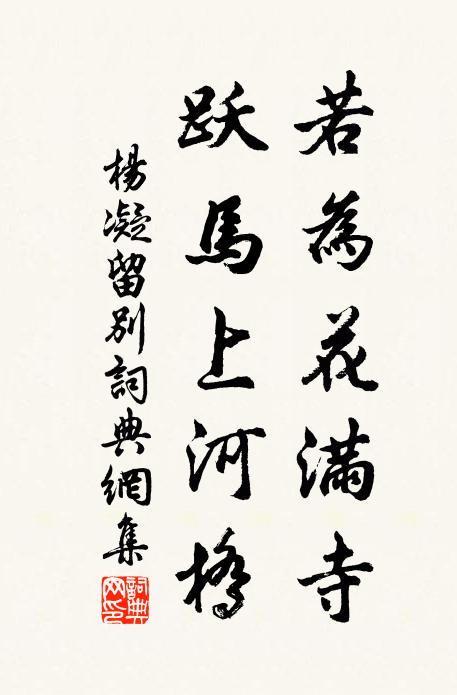 若為花滿寺
跃馬上河橋
楊凝留別詞典網集
詞典网印